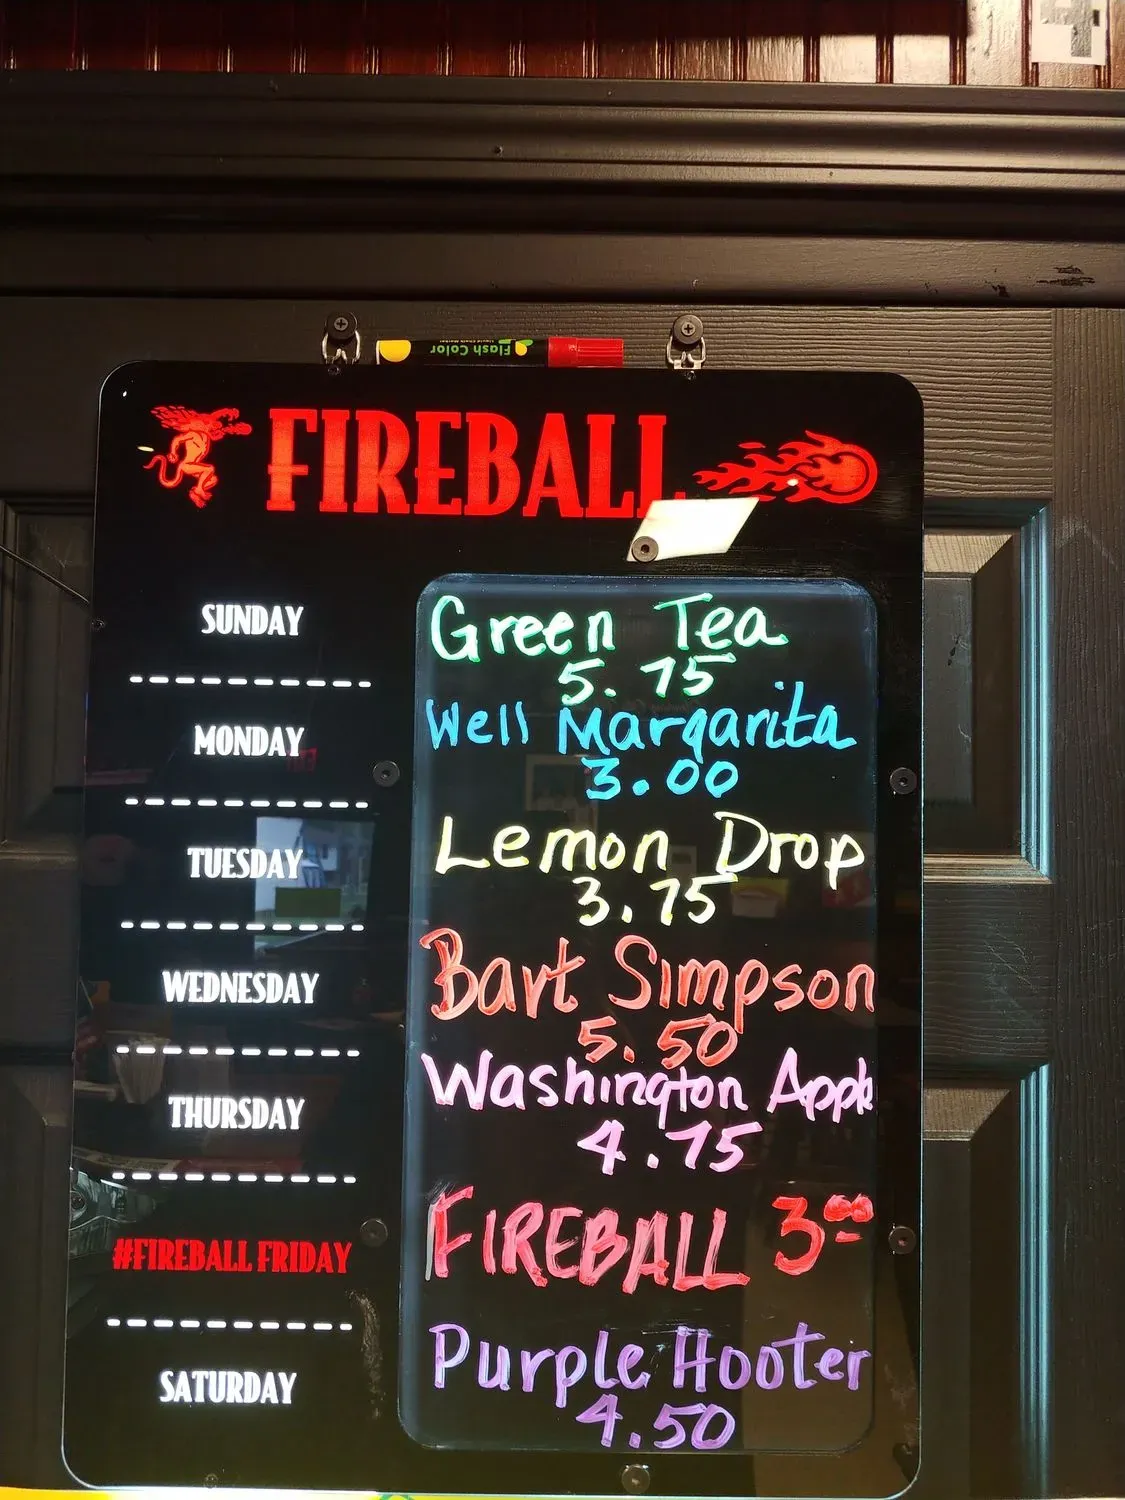 Flash Color
FIREBALL
SUNDAY
Green Tea
5.75
MONDAY
Well Margarita
3.00
TUESDAY
Lemon Drop
3.75
WEDNESDAY
Bart Simpson
5.50
THURSDAY
Washington Apple
4.75
#FIREBALL FRIDAY
FIREBALL 300
SATURDAY
Purple Hooter
4.50